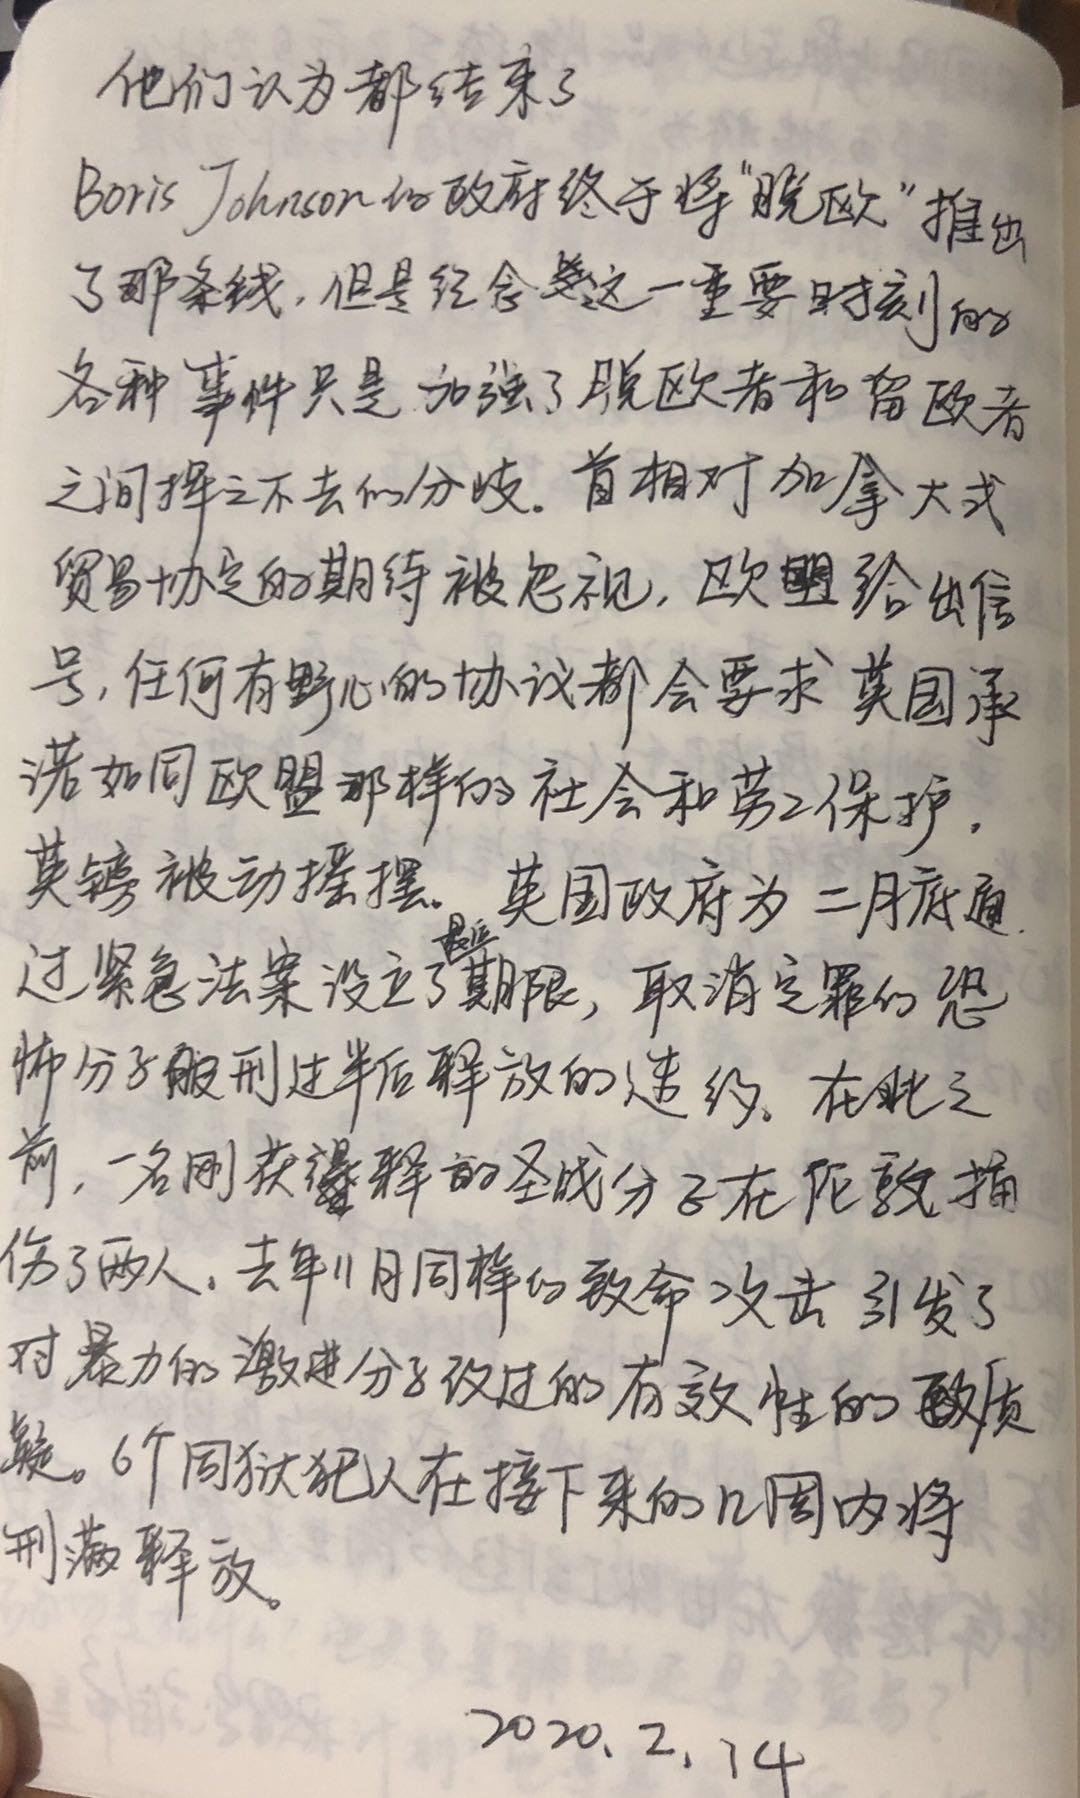 他们认为都结束了
Boris Johnson的政府终于将“脱欧”推出
了那条线，但是纪念这一重要时刻的
各种事件只是加强了脱欧者和留欧者
之间挥之不去的分歧。首相对加拿大式
贸易协定的期待被忽视，欧盟给出信
号，任何有野心的协议都会要求英国承
诺如同欧盟那样的社会和劳工保护，
英镑被动摇摆。英国政府为二月底通
过紧急法案设立了最后期限，取消定罪的恐
怖分子服刑过半后释放的违约。在此之
前，一名刚获释的圣战分子在伦敦捅
伤了两人。去年11月同样的致命攻击引发了
对暴力的激进分子改过的有效性的质
疑。6个同狱犯人在接下来的几周内将
刑满释放。
2020.2.14